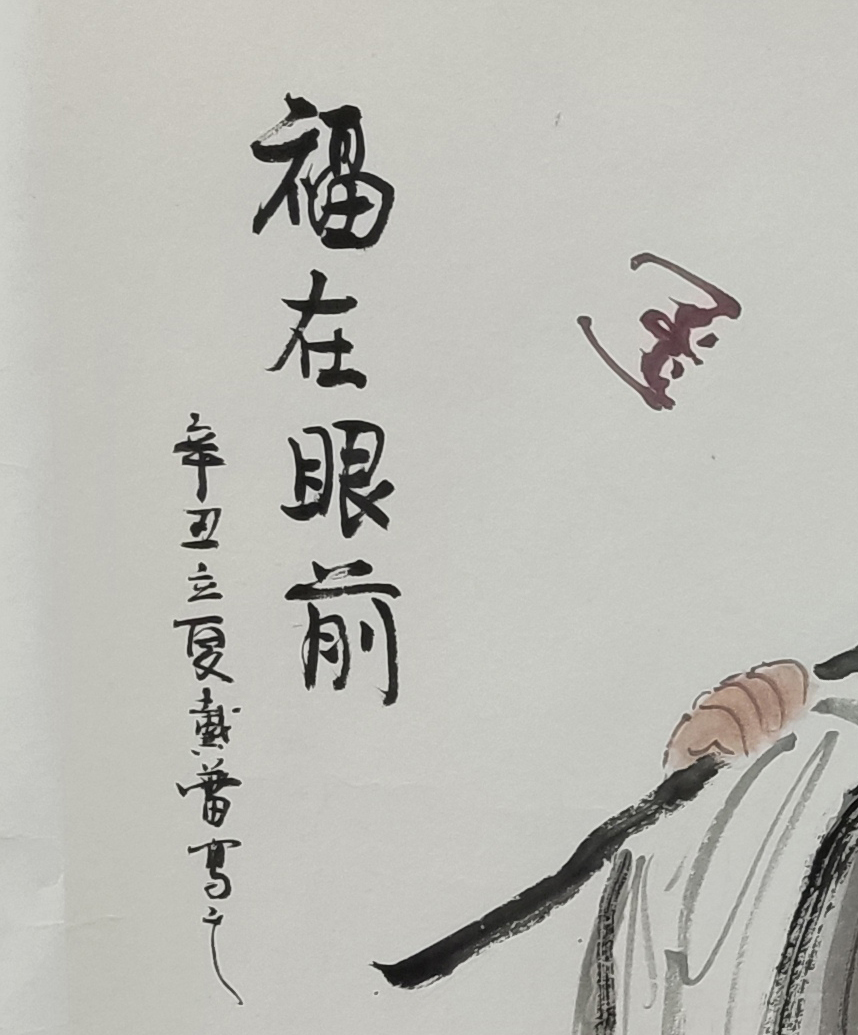 福在眼前
辛丑立夏戴蕾写之